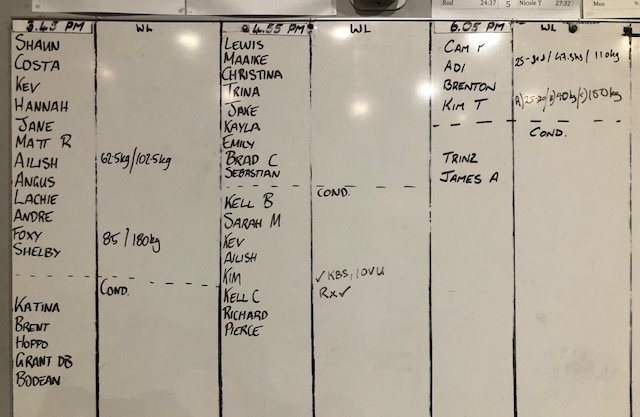 Rod 24:37 5 Nicole T 27:32 Mos
3.45 PM WL
SHAUN
COSTA
KEV
HANNAH
JANE
MATT R
AILISH 62.5kg/102.5kg
ANGUS
LACHIE
ANDRE
FOXY 85/180kg
SHELBY
COND.
KATINA
BRENT
HOPPO
GRANT DB
BODEAN
4.55 PM WL
LEWIS
MAAIKE
CHRISTINA
TRINA
JAKE
KAYLA
EMILY
BRAD C
SEBASTIAN
COND.
KELL B
SARAH M
KEV
AILISH
KIM ✓ KBS, 10VU
KELL C Rx ✓
RICHARD
PIERCE
6.05 PM WL
CAM
ADI 47.5kg / 110kg
BRENTON
KIM T
COND.
TRINZ
JAMES A